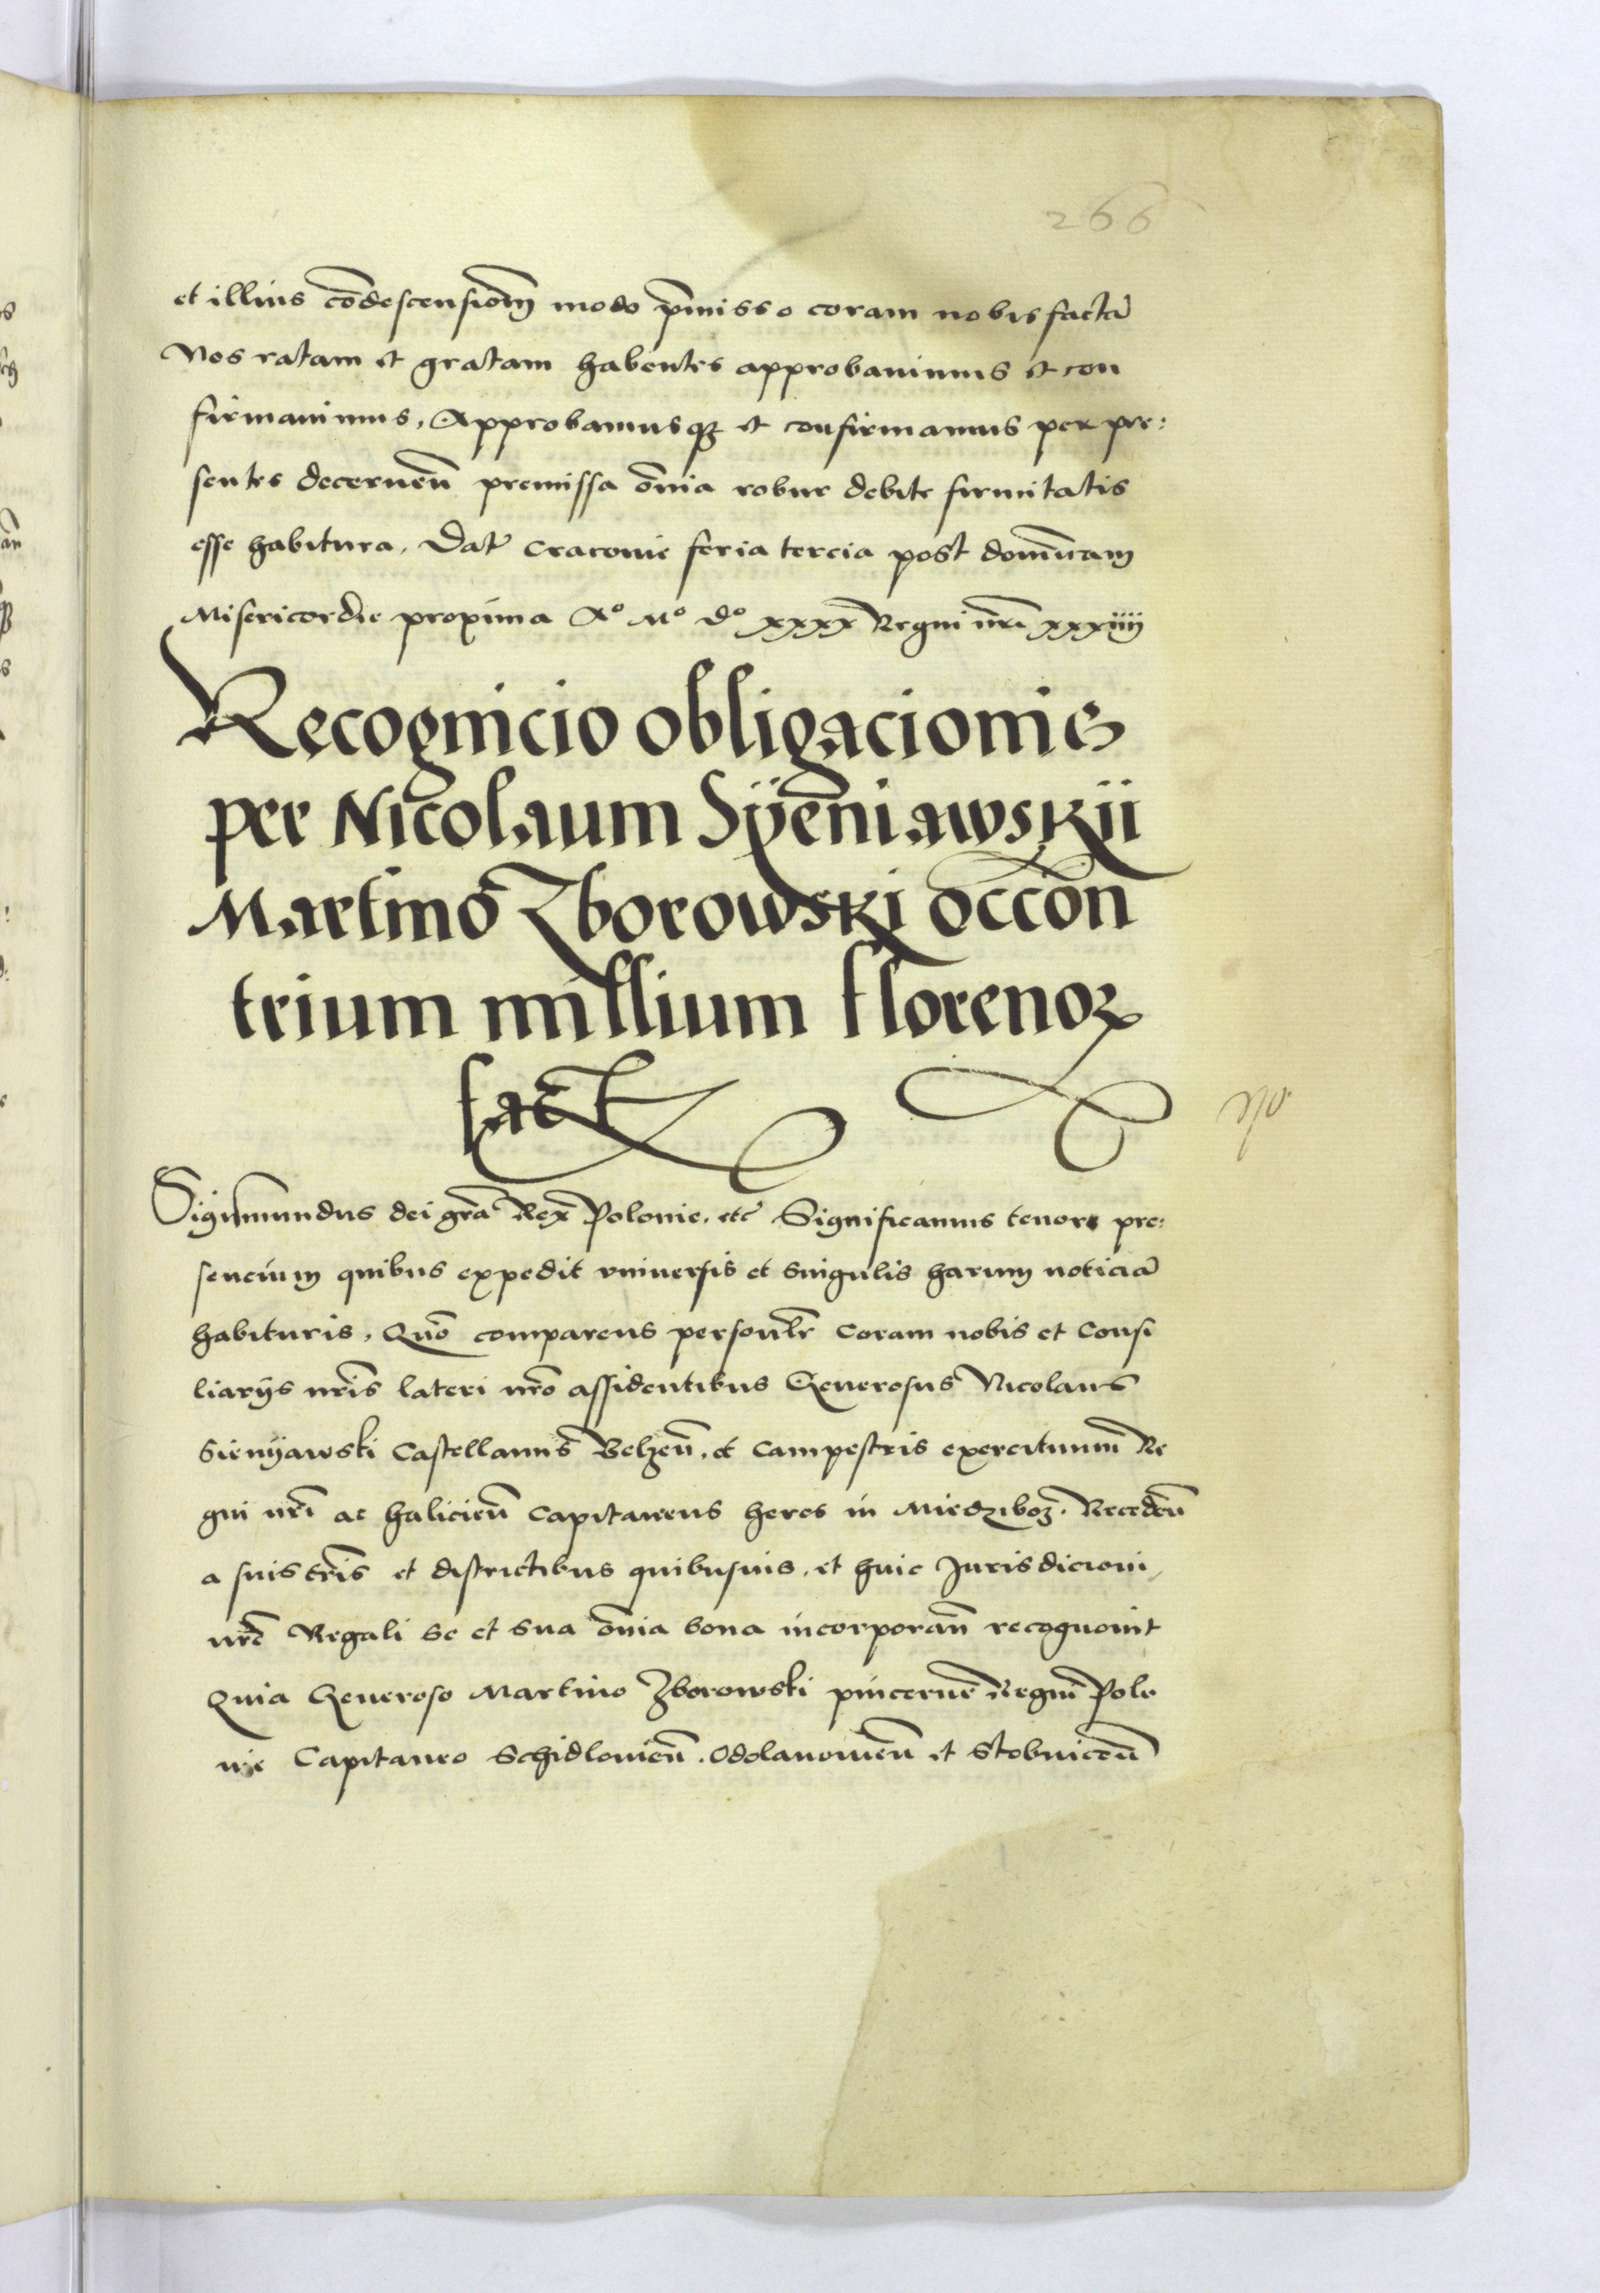 266
et illius cōdescensionē modo p̄misso coram nobis factā
Nos ratam et gratam habentes approbauimus et con
firmauimus, Approbamusqȝ et confirmamus per pre:
sentes decernen̄ premissa om̄ia robur debite firmitatis
esse habitura, Dat̄ Cracouie feria tercia post dominicam
Misericordie proxima Aº Mº Dº xxxx Regni nr̄i xxxiiii
Recognicio obligacionis
per Nicolaum Syeniawskii
Martino Zborowski occōn
trium millium florenoꝝ
fact̄
Sigismundus dei gr̄a Rex Polonie, etc̄ Significamus tenore pre:
sencium quibus expedit vniuersis et singulis harum noticiā
habituris, Quō comparens personlr̄ coram nobis et Consi
liarijs nr̄is lateri nr̄o assidentibus Generosus Nicolaus
Sienyawski Castellanus Belzen̄, et campestris exercituum Re
gni nr̄i ac halicien̄ Capitaneus heres in Miedziboz. Receden̄
a suis tr̄is et districtibus quibusuis, et huic Jurisdicioni
nr̄e Regali se et sua om̄ia bona incorporan̄ recognouit
Quia Generoso Martino Zborowski pincerne Regni Polo
nie Capitaneo Schidlouien̄. Odolanouien̄ et Stobnicen̄